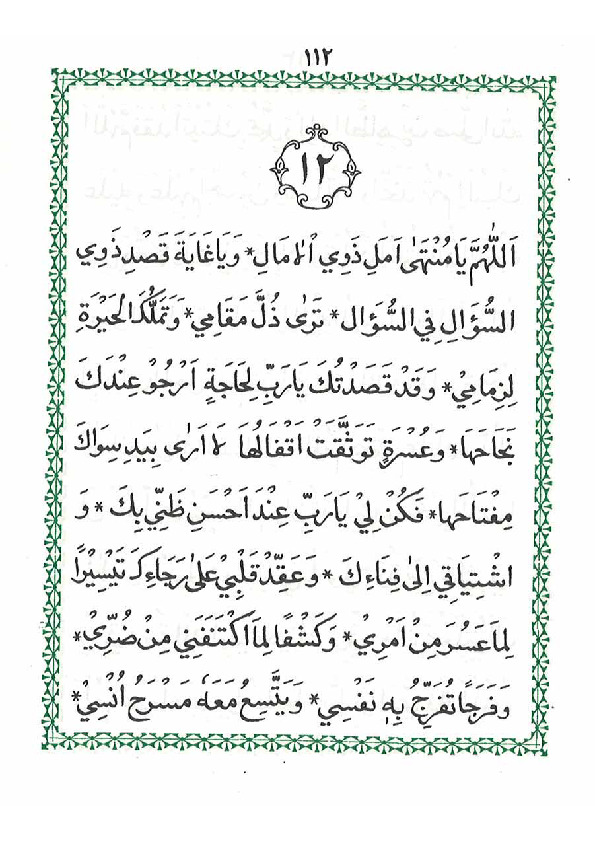 ١١٢
١٢
اَللّٰهُمَّ يَا مُنْتَهٰى اَمَلِ ذَوِي اْلاٰمَالِ * وَ يَا غَايَةَ قَصْدِ ذَوِي
السُّؤَالِ فِي السُّؤَالِ * تَرٰى ذُلَّ مَقَامِي * وَ تَمَلُّكَ الْحَيْرَةِ
لِزِمَامِيْ * وَ قَدْ قَصَدْتُكَ يَا رَبِّ لِحَاجَةٍ اَرْجُوْ عِنْدَكَ
نَجَاحَهَا * وَ عُسْرَةٍ تَوَثَّقَتْ اَقْفَالُهَا لَا اَرٰى بِيَدِ سِوَاكَ
مِفْتَاحَها * فَكُنْ لِيْ يَا رَبِّ عِنْدَ اَحْسَنِ ظَنِّي بِكَ * وَ
اشْتِيَاقِي اِلىٰ فِنَاءِكَ * وَ عَقِّدْ قَلْبِيْ عَلىٰ رَجَاءِكَ تَيْسِيْرًا
لِمَا عَسُرَ مِنْ اَمْرِيْ * وَ كَشْفًا لِمَا اكْتَنَفَنِي مِنْ ضُرِّيْ *
وَ فَرَجًا تُفَرِّجُ بِهٖ نَفْسِي * وَ يَتَّسِعُ مَعَهٗ مَسْرَحُ اُنْسِيْ *